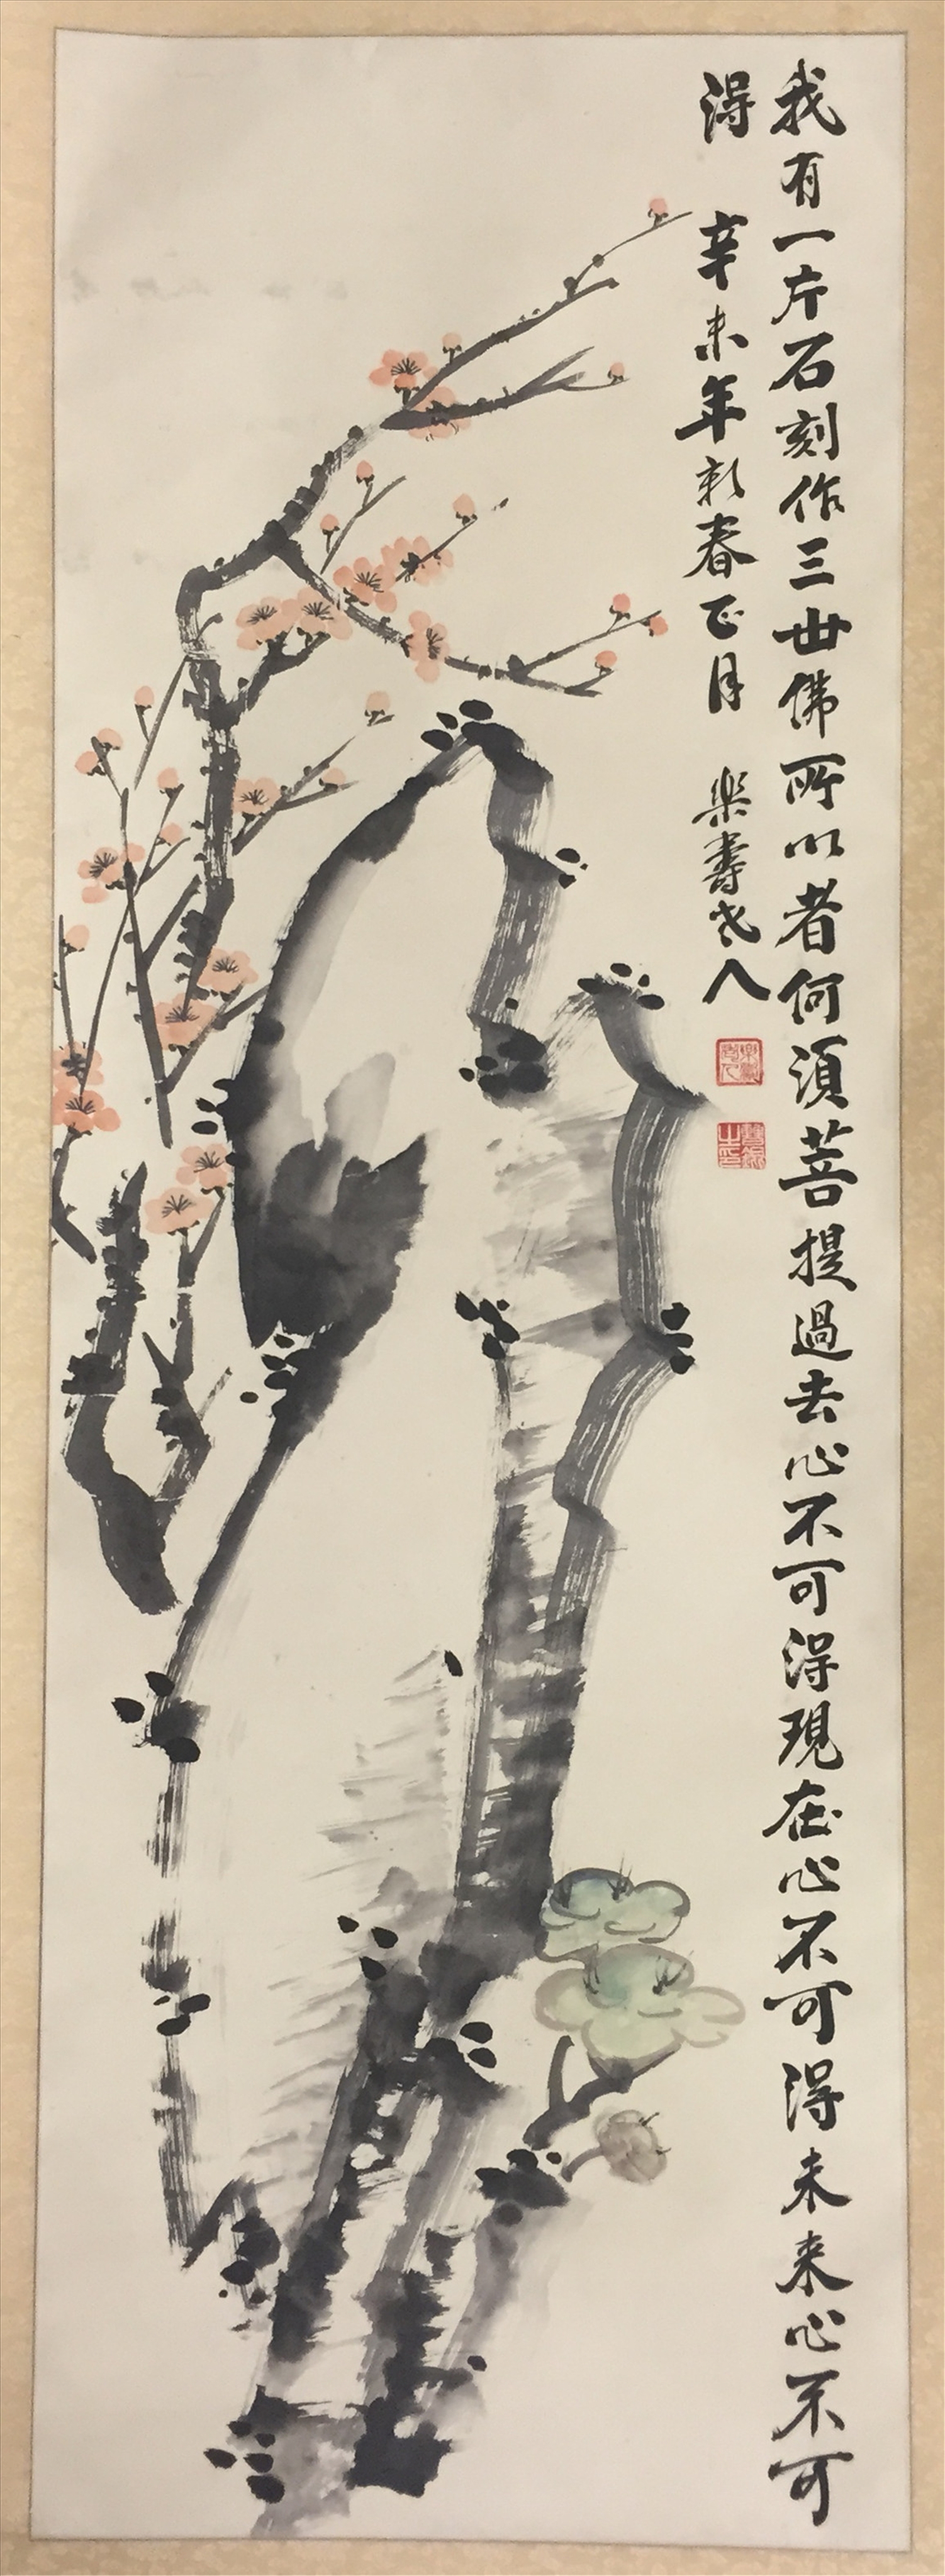 我有一片石刻作三世佛所以者何須菩提過去心不可得現在心不可得未来心不可
得 辛未年新春正月 樂壽老人